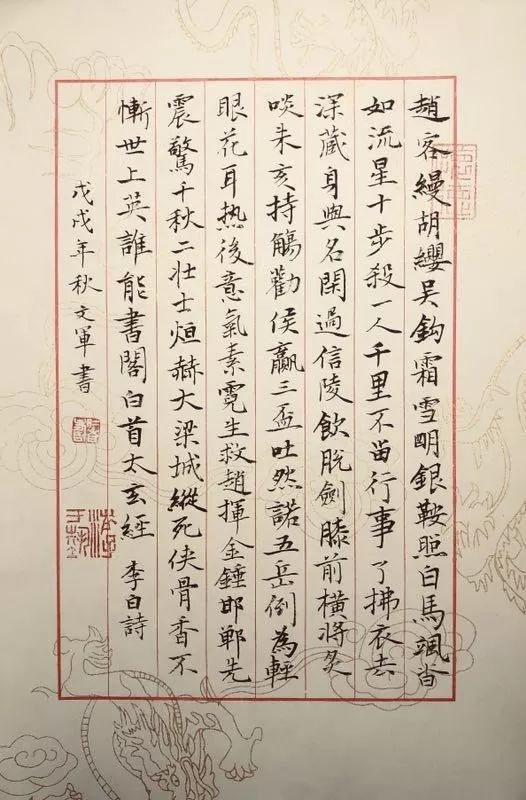 趙客縵胡纓吳鉤霜雪眀銀鞍照白馬颯沓
如流星十步殺一人千里不留行事了拂衣去
深藏身與名閑過信陵飲脫劍膝前橫將炙
啖朱亥持觴勸侯嬴三盃吐然諾五岳倒為輕
眼花耳热後意氣素霓生救趙揮金錘邯鄲先
震驚千秋二壯士烜赫大梁城縱死俠骨香不
慚世上英誰能書閣白首太玄經 李白詩
戊戌年秋文軍書